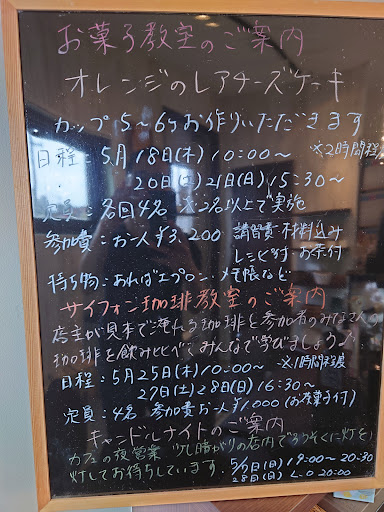 お菓子教室のご案内
オレンジのレアチーズケーキ
カップ5〜6ヶお作りいただきます
日程:5月18日(木)10:00〜 ※2時間程度
20日(土)21日(日)15:30〜
定員:各回4名 ※2名以上で実施
参加費:お一人¥3,200 講習費・材料込み
レシピ付・お茶付
持ち物:あればエプロン・メモ帳など
サイフォン珈琲教室のご案内
店主が見本で淹れる珈琲と参加者のみなさんの
珈琲を飲み比べてみんなで学びましょう♪
日程:5月25日(木)10:00〜 ※1時間程度
27日(土)28日(日)16:30〜
定員:4名 参加費お一人¥1,000(お菓子付)
キャンドルナイトのご案内
カフェの夜営業 少し暗がりの店内でろうそくに灯を
灯してお待ちしています。
(日)19:00〜20:30
28日(日) L・O 20:00